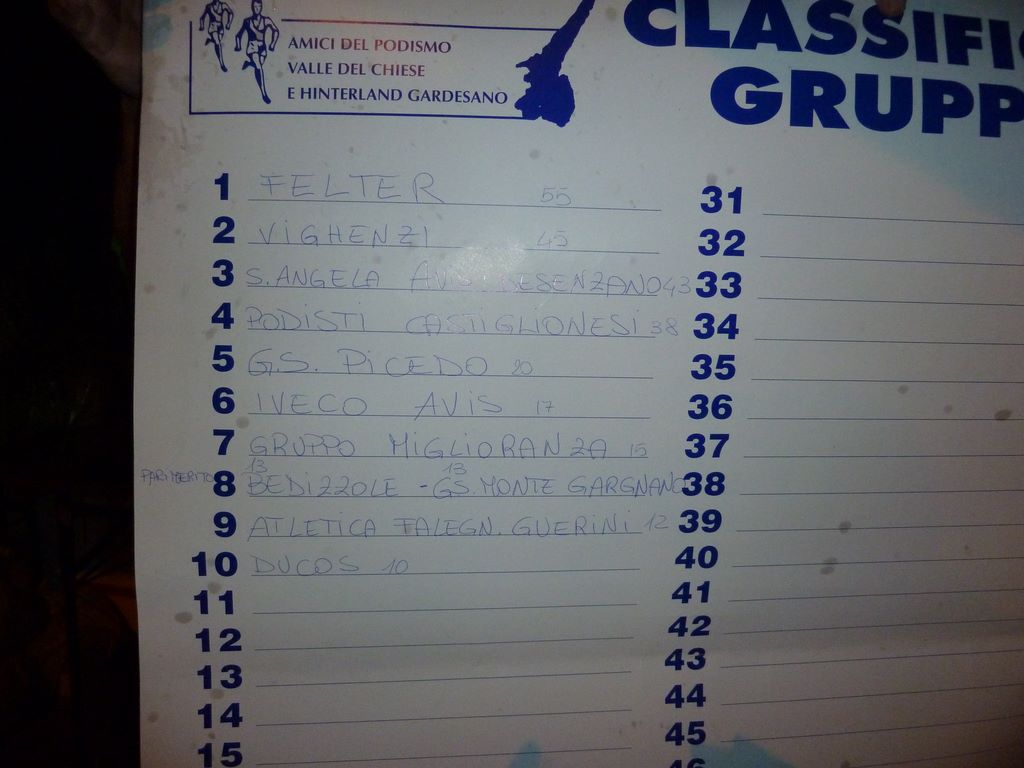 AMICI DEL PODISMO
VALLE DEL CHIESE
E HINTERLAND GARDESANO
CLASSIFI
GRUPP
1 FELTER 55
2 VIGHENZI 45
3 S. ANGELA AVIS DESENZANO 43
4 PODISTI CASTIGLIONESI 38
5 G.S. PICEDO 20
6 IVECO AVIS 17
7 GRUPPO MIGLIORANZA 15
13 13
PARI MERITO 8 BEDIZZOLE - GS. MONTE GARGNANO
9 ATLETICA FALEGN. GUERINI 12
10 DUCOS 10
11
12
13
14
15
31
32
33
34
35
36
37
38
39
40
41
42
43
44
45
46